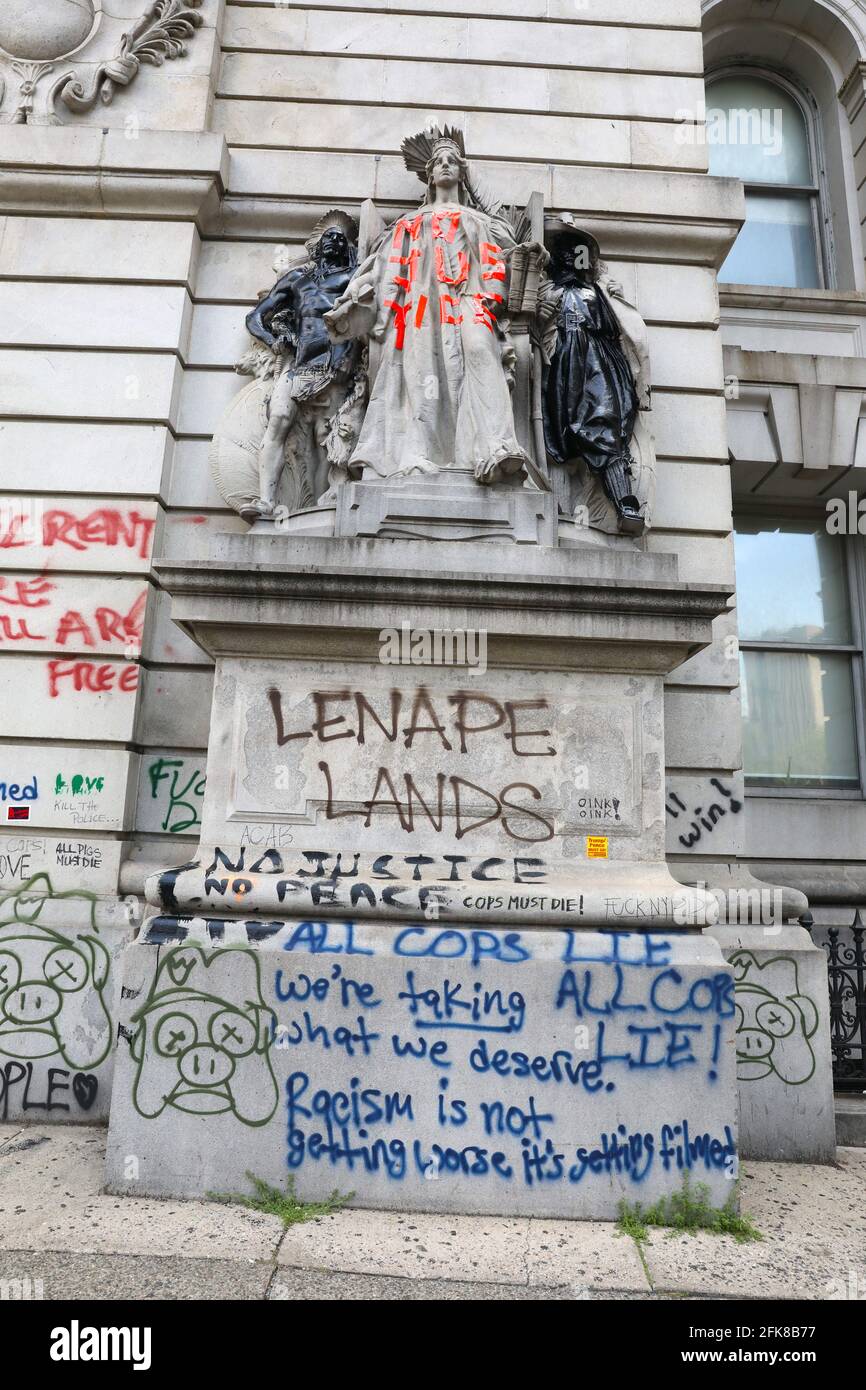 NO
JUS
TICE
RENT
ARE
ALL AR!
FREE
LENAPE
LANDS
LOVE
KILL THE
POLICE...
OINK!
OINK!
ll win!
ACAB
LOVE
ALL PIGS
MUST DIE
Trump/
Pence
NO JUSTICE
NO PEACE
COPS MUST DIE!
FUCK NYPD
ALL COPS LIE
We're taking
what we deserve.
ALL COPS
LIE!
Racism is not
getting worse it's getting filmed
alamy
Image ID: 2FK8B77
www.alamy.com